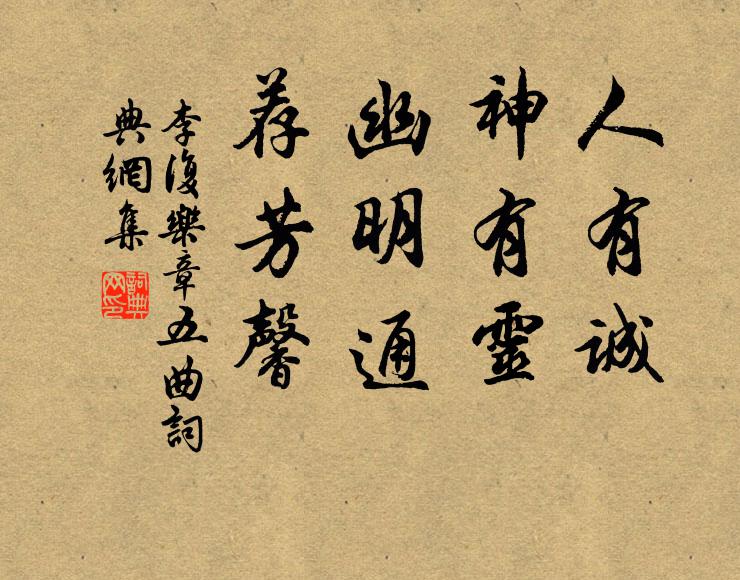 人有誠
神有靈
幽明通
荐芳馨
李復樂章五曲詞
典網集
詞典
网印